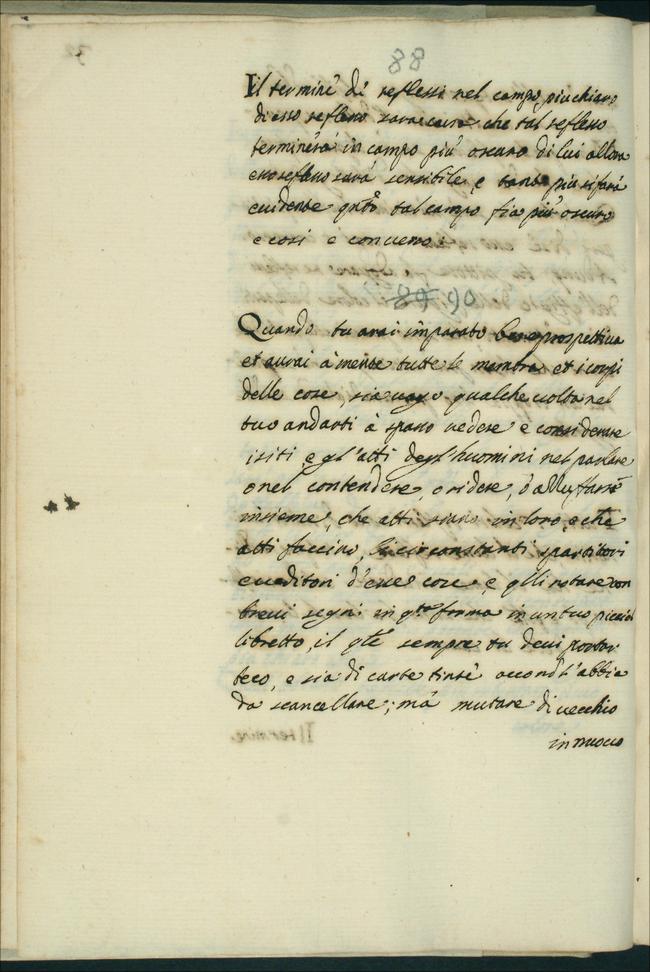 88
Il termine de' reflessi nel campo piu chiaro
di esso reflesso sara causa che tal reflesso
terminerà in campo piu' oscuro di lui allora
esso reflesso sarà sensibile, e tanto piu si farà
euidente qnto tal campo fia piu' oscuro
e cosi è conuerso:
89 90
Quando tu arai imparato bene prospettiua
et aurai à mente tutte le membra et i corpi
delle cose, sia uago qualche uolta nel
tuo andarti à spasso uedere e considerare
i siti, e gl'atti degl'huomini nel parlare
o nel contendere, o ridere, ò alluffarse
insieme, che atti siano in loro, e che
atti faccino, li circonstanti spartitori
e ueditori d'esse cose e qlli notare con
breui segni in qta forma in un tuo picciol
libretto, il qle sempre tu deui portar
teco, e sia di carte tinte acciò nò l'abbia
da scancellare; mà mutare di uecchio
in nuouo